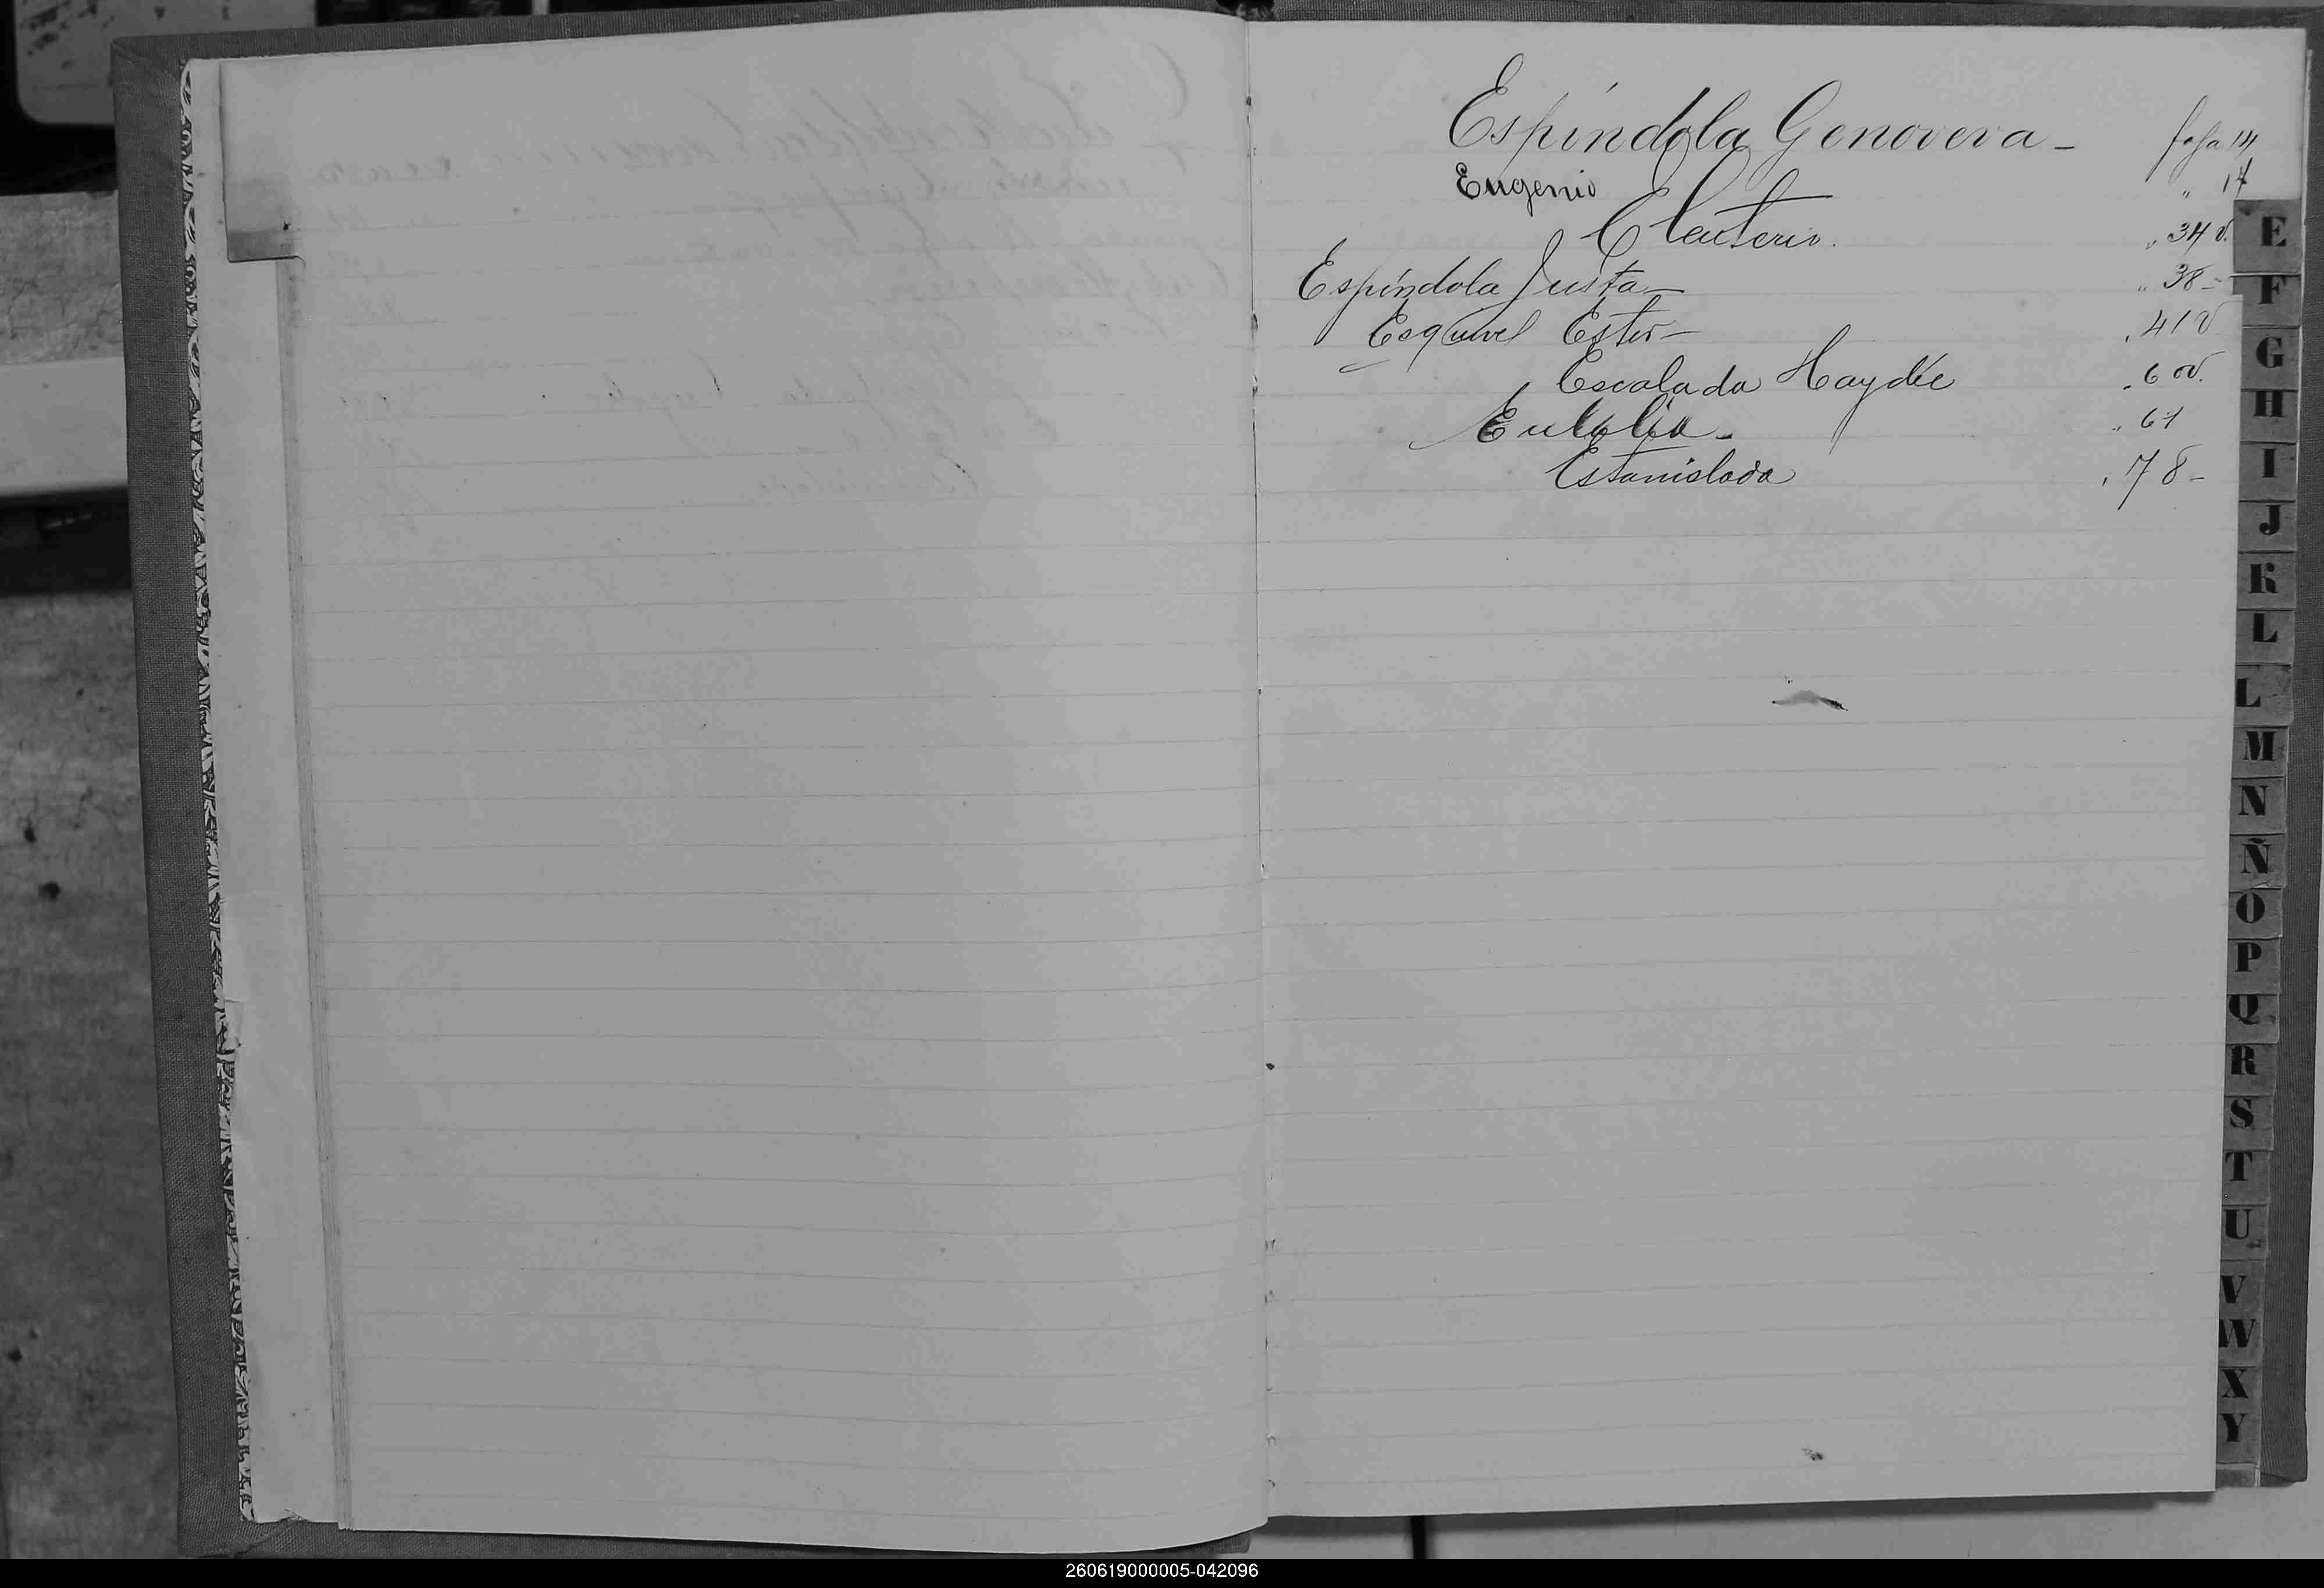 Espíndola Genoveva - foja 14
Eugenio " 17
Eleuterio. " 34 v.
Espíndola Justa - " 38 -
Esquivel Ester - " 41 v
Escalada Haydée " 60 v.
Eulalia - " 61
Estanislada " 78 -
E
F
G
H
I
J
K
L
L
M
N
Ñ
O
P
Q
R
S
T
U
V
W
X
Y
260619000005-042096